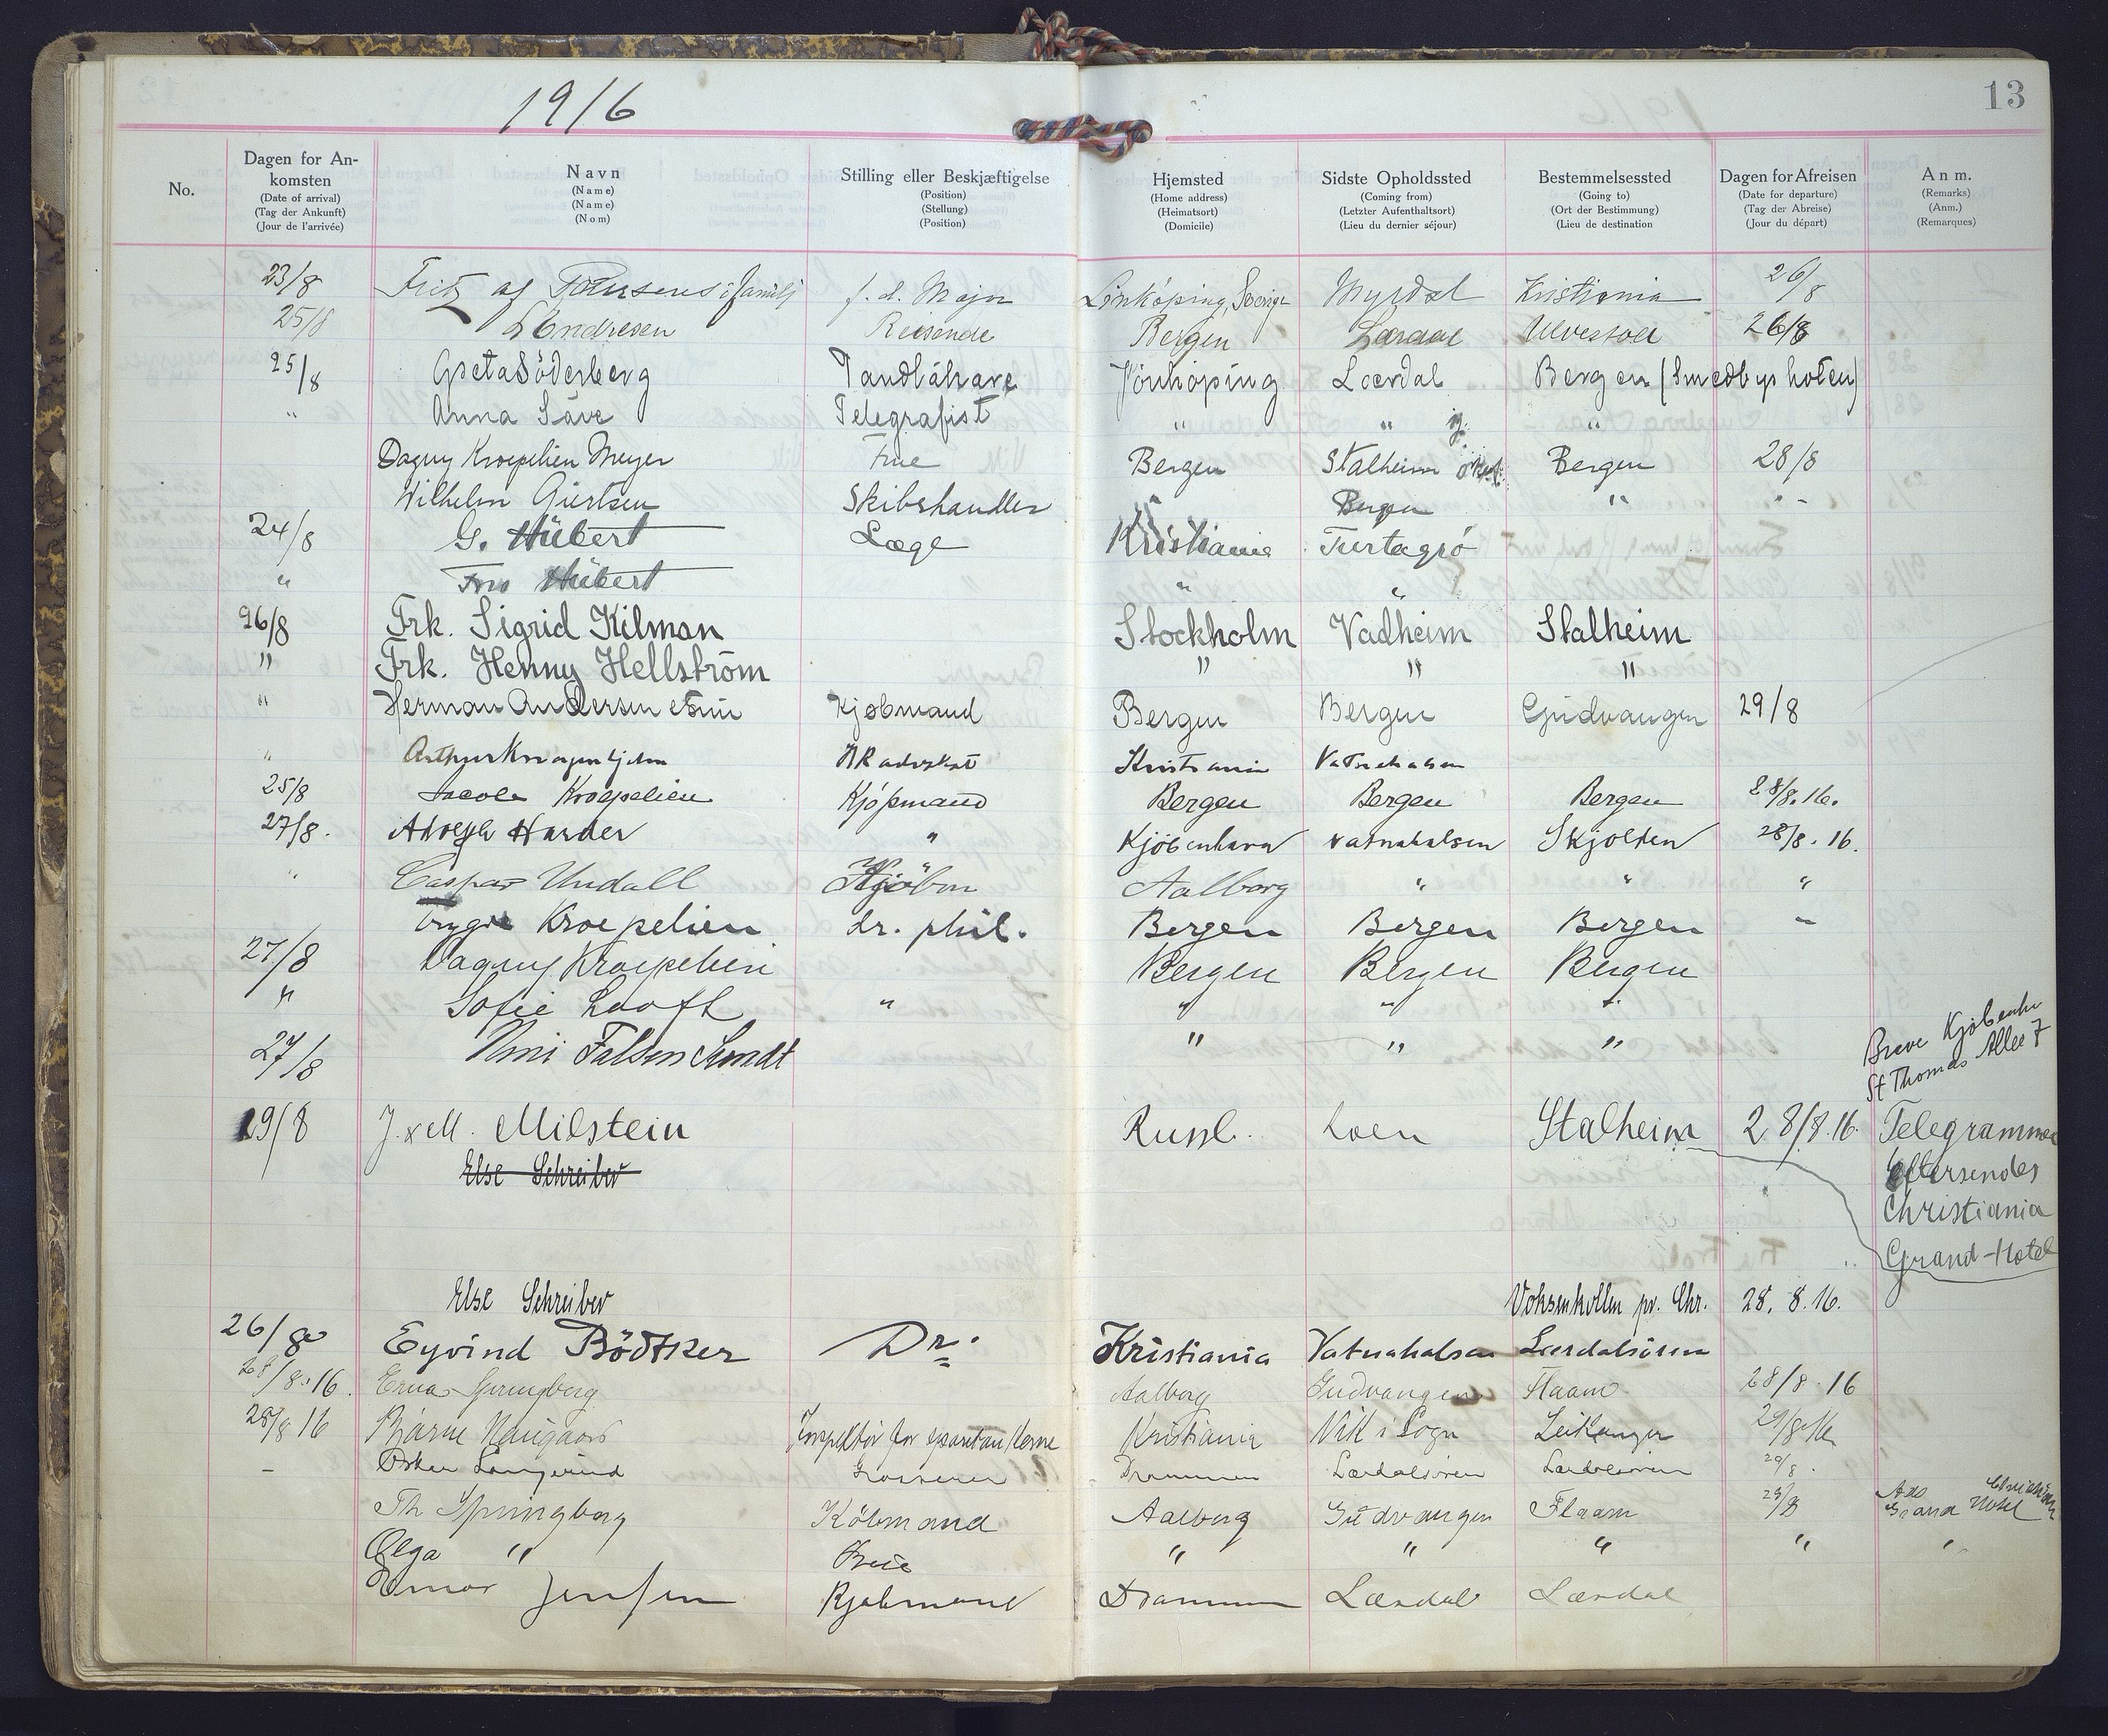 1916
13
No.
Dagen for An-
komsten
(Date of arrival)
(Tag der Ankunft)
(Jour de l'arrivée)
Navn
(Name)
(Name)
(Nom)
Stilling eller Beskjæftigelse
(Position)
(Stellung)
(Position)
Hjemsted
(Home address)
(Heimatsort)
(Domicile)
Sidste Opholdssted
(Coming from)
(Letzter Aufenthaltsort)
(Lieu du dernier séjour)
Bestemmelsessted
(Going to)
(Ort der Bestimmung)
(Lieu de destination
Dagen for Afreisen
(Date for departure)
(Tag der Abreise)
(Jour du départ)
Anm.
(Remarks)
(Anm.)
(Remarques)
23/8 Fritz af familj f. d. Major Linköping, Sverige Myrdal Kristiania 26/8
25/8 Andresen Reisende Bergen Lærdal 26/8
25/8 Greta Söderberg Tandläkare Jönköping Lærdal Bergen (Smedbys hotell)
" Anna Säve Telegrafist " " "
Dagny Kroepelien Meyer Frue Bergen Stalheim Bergen 28/8
Wilhelm Giertsen Skibshandler " Bergen " "
24/8 G. Hübert Læge Kristiania Turtagrö
" Fru Hübert " "
26/8 Frk. Sigrid Kilman Stockholm Vadheim Stalheim
" Frk. Henny Hellström " " "
" Herman Andersen Kjøbmand Bergen Bergen Gudvangen 29/8
" Arthur HRadvokat Kristiania Vatnahalsen
25/8 Jacob Kroepelien Kjøpmand Bergen Bergen Bergen 28/8.16.
27/8. Adolph Harder " Kjöbenhavn Vatnahalsen Skjolden 28/8. 16.
" Caspar Undall Kjöbm Aalborg " " "
Trygve Kroepelien dr. phil. Bergen Bergen Bergen "
27/8 Dagny Kroepelien Bergen Bergen Bergen
" Sofie Looft " " " "
27/8 Mimi Falsen Sundt " " "
Breve Kjøbenhv
St Thomas Allee 7
29/8 J. & M. Milstein Russl. Loen Stalheim 28/8.16. Telegrammer
Else Schreiber Eftersendes
Christiania
Grand-Hotel
Else Schreiber Voksenkollen pr. Chr. 28. 8. 16.
26/8 Eyvind Bödtker Dr. Kristiania Vatnahalsen Lærdalsören
28/8.16. Erna Springborg Aalborg Gudvangen Flaam 28/8 16
28/8 16 Bjarne Kristiania Vik i Sogn Leikanger 29/8
– Oskar Langerud Grosserer Drammen Lærdalsören Lærdalsören 29/8.
Th Springborg Köbmand Aalborg Gudvangen Flaam 29/8 Grand Hotel
Olga " Frue " " " " "
Einar Jensen Kjøbmand Drammen Lærdal Lærdal